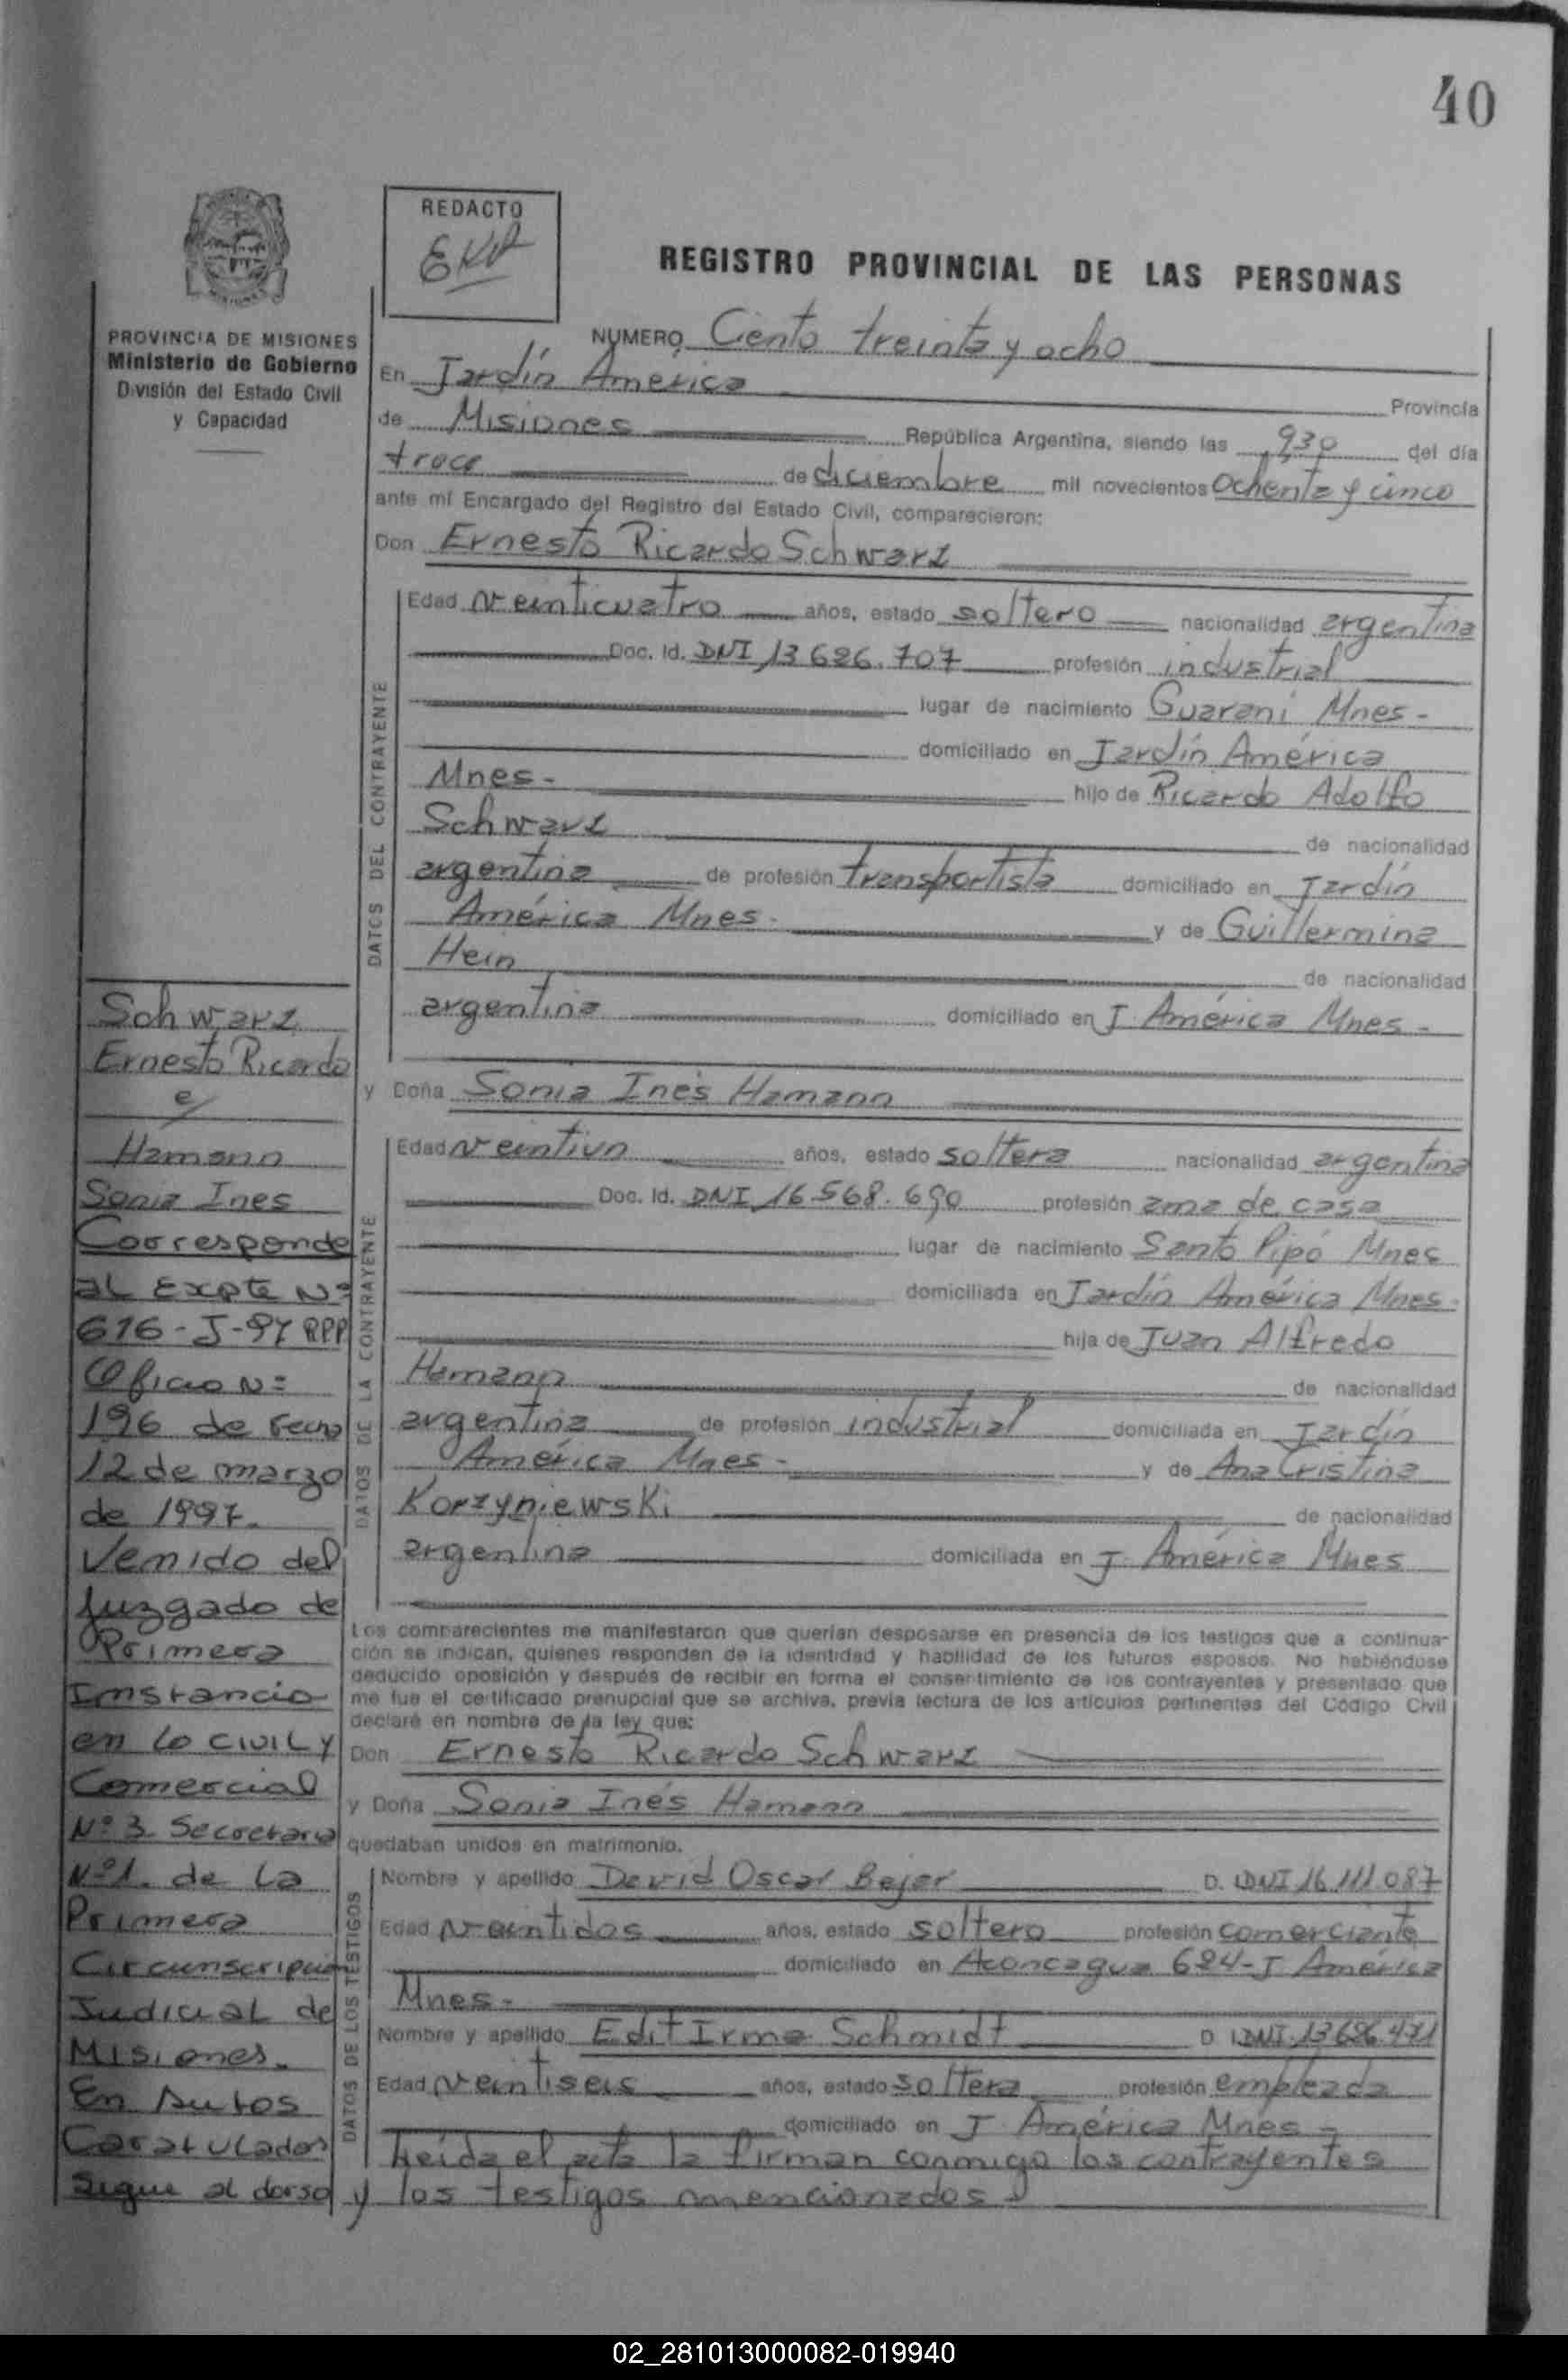 40
REDACTO
REGISTRO PROVINCIAL DE LAS PERSONAS
PROVINCIA DE MISIONES
Ministerio de Gobierno
División del Estado Civil
y Capacidad
NUMERO Ciento treinta y ocho
En Jardín América Provincia
de Misiones República Argentina, siendo las 9,30 del día
trece de diciembre mil novecientos ochenta y cinco
ante mí Encargado del Registro del Estado Civil, comparecieron:
Don Ernesto Ricardo Schwarz
DATOS DEL CONTRAYENTE
Edad veinticuatro años, estado soltero nacionalidad argentina
Doc. Id. DNI 13 686.707 profesión industrial
lugar de nacimiento Guaraní Mnes-
domiciliado en Jardín América
Mnes- hijo de Ricardo Adolfo
Schwarz de nacionalidad
argentina de profesión transportista domiciliado en Jardín
América Mnes- y de Guillermina
Hein de nacionalidad
argentina domiciliado en J. América Mnes-
y Doña Sonia Inés Hamann
DATOS DE LA CONTRAYENTE
Edad veintiun años, estado soltera nacionalidad argentina
Doc. Id. DNI 16.568.690 profesión ama de casa
lugar de nacimiento Santo Pipó Mnes
domiciliada en Jardín América Mnes-
hija de Juan Alfredo
Hamann de nacionalidad
argentina de profesión industrial domiciliada en Jardín
América Mnes- y de Ana Cristina
Korzyniewski de nacionalidad
argentina domiciliada en J. América Mnes
Los comparecientes me manifestaron que querían desposarse en presencia de los testigos que a continua-
ción se indican, quienes responden de la identidad y habilidad de los futuros esposos. No habiéndose
deducido oposición y después de recibir en forma el consentimiento de los contrayentes y presentado que
me fue el certificado prenupcial que se archiva, previa lectura de los artículos pertinentes del Código Civil
declaré en nombre de la ley que:
Don Ernesto Ricardo Schwarz
y Doña Sonia Inés Hamann
quedaban unidos en matrimonio.
DATOS DE LOS TESTIGOS
Nombre y apellido David Oscar Bejer D. I. DNI 16.111.087
Edad veintidos años, estado soltero profesión comerciante
domiciliado en Aconcagua 684-J América
Mnes-
Nombre y apellido Edit Irma Schmidt D. I. DNI 13 686.471
Edad veintiseis años, estado soltera profesión empleada
domiciliado en J. América Mnes-
Leída el acta la firman conmigo los contrayentes
y los testigos mencionados
Schwarz
Ernesto Ricardo
c/
Hamann
Sonia Ines
Corresponde
al Expte Nº
616-J-97 RPP
Oficio Nº
196 de fecha
12 de marzo
de 1997.
Venido del
Juzgado de
Primera
Instancia
en lo civil y
Comercial
Nº 3 Secretaria
Nº 1. de La
Primera
Circunscripción
Judicial de
Misiones.
En Autos
Caratulados
Sigue al dorso
02_281013000082-019940